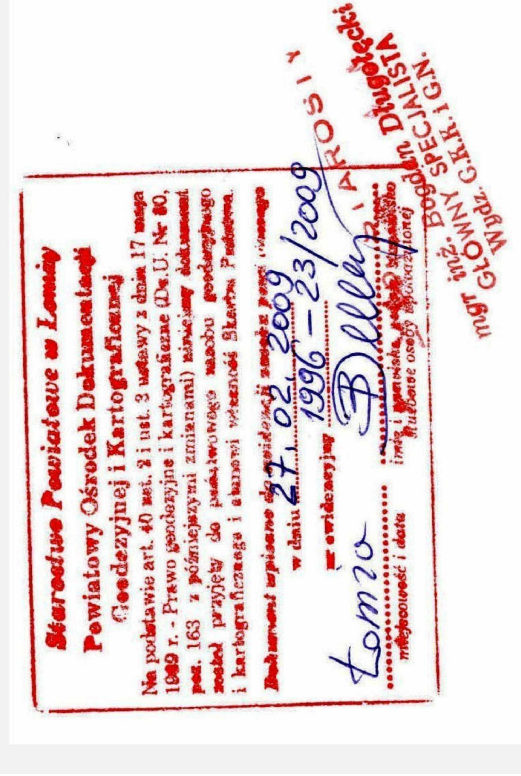 Starostwo Powiatowe w Łomży
Powiatowy Ośrodek Dokumentacji
Geodezyjnej i Kartograficznej
Na podstawie art. 40 ust. 2 i ust. 3 ustawy z dnia 17 maja
1989 r. - Prawo geodezyjne i kartograficzne (Dz.U. Nr 30,
poz. 163 z późniejszymi zmianami) niniejszy dokument
został przyjęty do państwowego zasobu geodezyjnego
i kartograficznego i stanowi własność Skarbu Państwa.
Dokument wpisano do ewidencji zasobu
w dniu 27.02.2009
nr ewidencyjny 1996-23/2009
Łomża
miejscowość i data
imię i nazwisko
służbowe osoby upoważnionej
STAROSTY
mgr inż. Bogdan Długołęcki
GŁÓWNY SPECJALISTA
Wydz. G.K.K. i G.N.